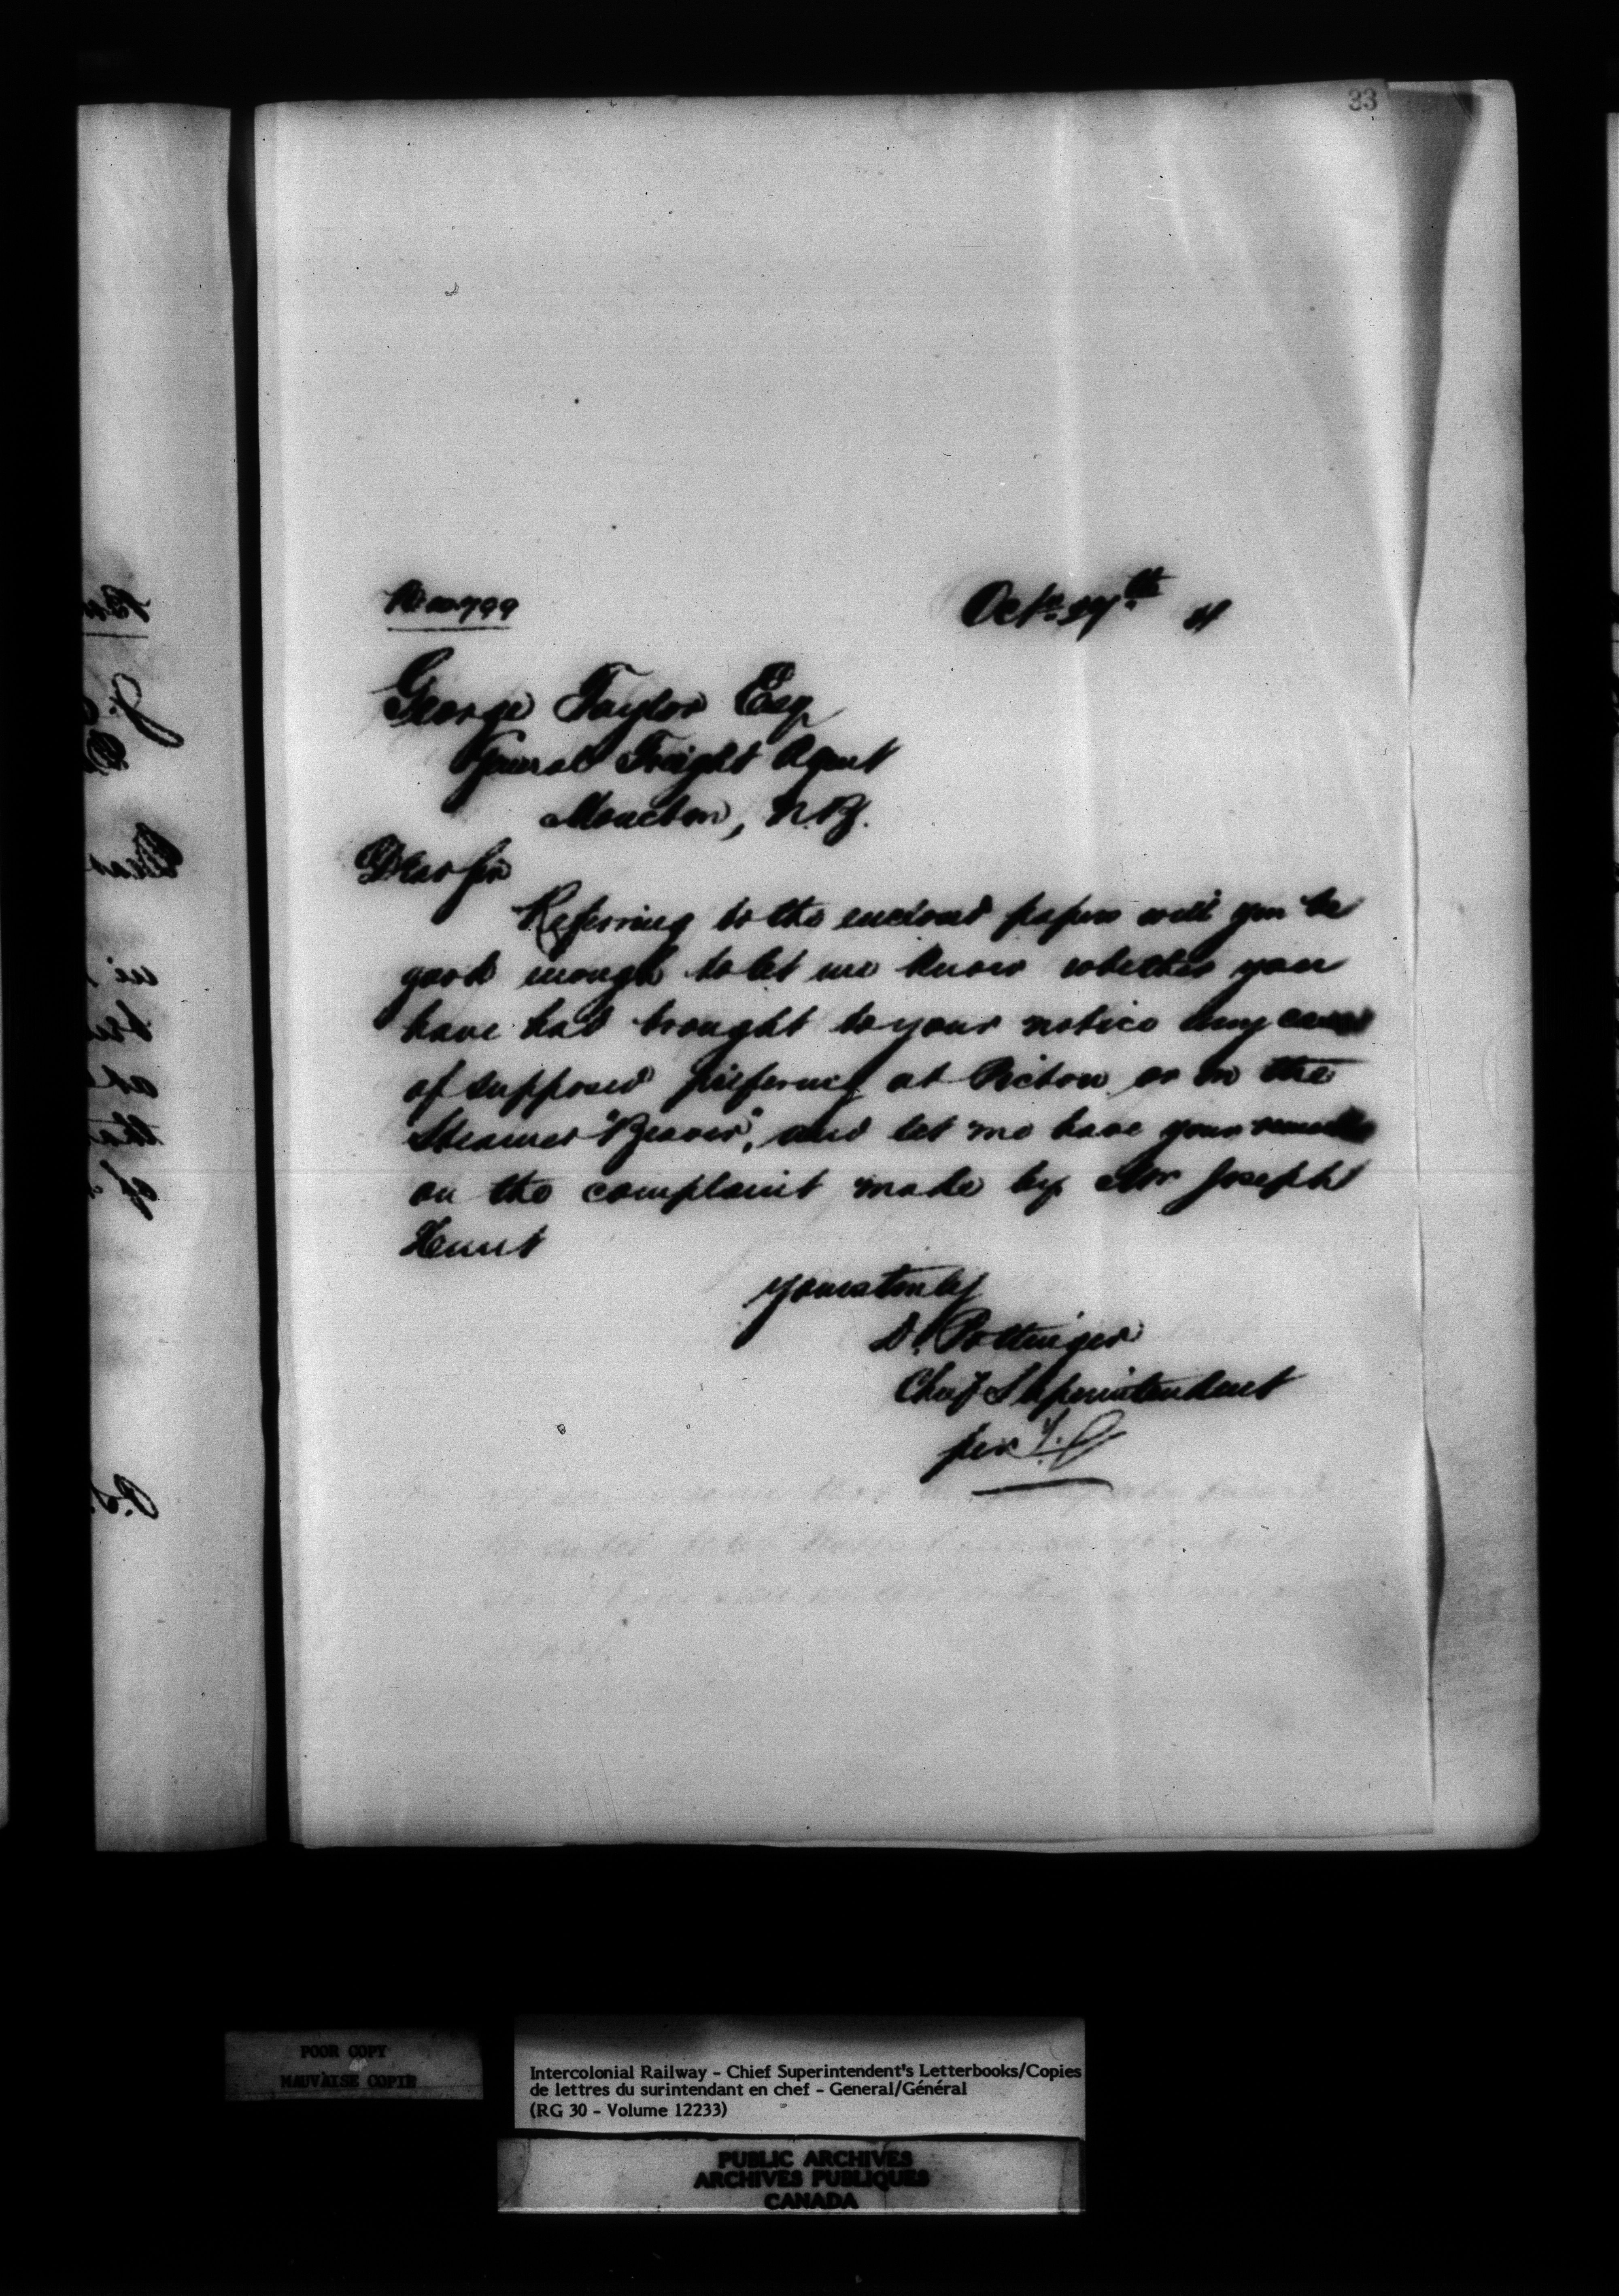 33
Octr 27th
George Taylor Esq
General Freight Agent
Moncton, N.B.
Dear Sir
Referring to the enclosed papers will you be
good enough to let me know whether you
have had brought to your notice any case
of supposed pilfering at Pictou or on the
Steamer "Beaver", and let me have your remarks
on the complaint made by Mr Joseph
Hunt
Yours truly
D. Pottinger
Chief Superintendent
per
POOR COPY
MAUVAISE COPIE
Intercolonial Railway - Chief Superintendent's Letterbooks/Copies
de lettres du surintendant en chef - General/Général
(RG 30 - Volume 12233)
PUBLIC ARCHIVES
ARCHIVES PUBLIQUES
CANADA